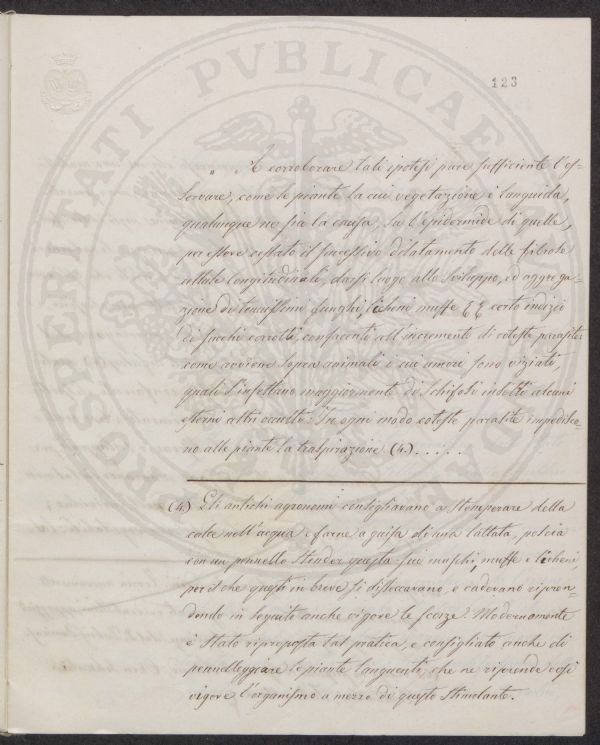 123
" A corroborare tali ipotesi pare sufficiente l'os-
servare, come le piante la cui vegetazione è languida,
qualunque ne sia la causa, su l'epidermide di quelle,
per essere restato il successivo dilatamento delle fibrose
cellule longitudinali, darsi luogo allo sviluppo, ed aggrega-
zione di tenuissimi funghi, licheni muffe &c &c certo indizio
di succhi corrotti, confacenti all'incremento di coteste parasite
come avviene sopra animali i cui umori sono viziati,
quali s'infettano maggiormente di schifosi insetti alcuni
esterni altri occulti. In ogni modo coteste parasite impedisco-
no alle piante la traspirazione (4.) . . . . .
(4.) Gli antichi agronomi consigliavano a stemperare della
calce nell'acqua e farne a guisa di una lattata, poscia
con un pennello stender questa sui muschi, muffe e licheni
per il che questi in breve si distoccavano, e cadevano ripren-
dendo in seguito anche vigore le scorze. Modernamente
è stato riproposta tal pratica, e consigliato anche di
pennelleggiare le piante languenti, che ne riprende così
vigore l'organismo a mezzo di questo stimolante.
PROSPERITATI PVBLICAE